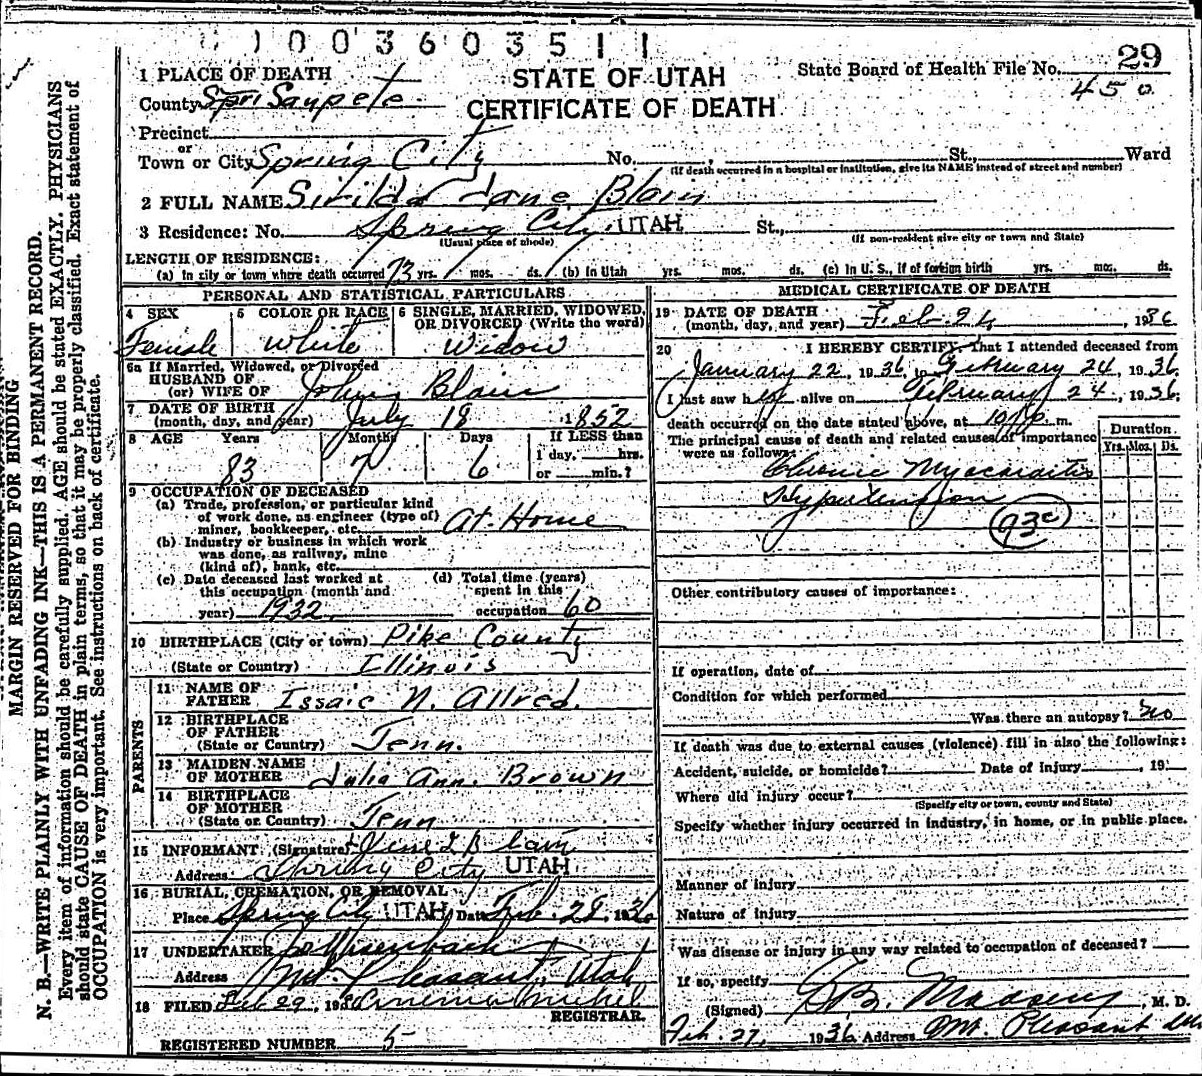 1003603511
29
STATE OF UTAH
CERTIFICATE OF DEATH
State Board of Health File No.
450
1 PLACE OF DEATH
County Spri Sanpete
Precinct
or
Town or City Spring City No. , St., Ward
(If death occurred in a hospital or institution, give its NAME instead of street and number)
2 FULL NAME Sirilda Jane Blain
3 Residence: No. Spring City, UTAH St.,
(Usual place of abode) (If non-resident give city or town and State)
LENGTH OF RESIDENCE:
(a) In city or town where death occurred 73 yrs. mos. ds. (b) In Utah yrs. mos. ds. (c) In U. S., if of foreign birth yrs. mos. ds.
PERSONAL AND STATISTICAL PARTICULARS
4 SEX 5 COLOR OR RACE 6 SINGLE, MARRIED, WIDOWED, OR DIVORCED (Write the word)
Female White Widow
6a If Married, Widowed, or Divorced
HUSBAND OF
(or) WIFE OF John Blain
7 DATE OF BIRTH
(month, day, and year) July 18 1852
8 AGE Years Months Days If LESS than
1 day, hrs.
83 7 6 or min.?
9 OCCUPATION OF DECEASED
(a) Trade, profession, or particular kind
of work done, as engineer (type of)
miner, bookkeeper, etc. At Home
(b) Industry or business in which work
was done, as railway, mine
(kind of), bank, etc.
(c) Date deceased last worked at (d) Total time (years)
this occupation (month and spent in this
year) 1932 occupation 60
10 BIRTHPLACE (City or town) Pike County
(State or Country) Illinois
PARENTS
11 NAME OF
FATHER Issaic N. Allred.
12 BIRTHPLACE
OF FATHER
(State or Country) Tenn.
13 MAIDEN NAME
OF MOTHER Julia Ann Brown
14 BIRTHPLACE
OF MOTHER
(State or Country) Tenn
15 INFORMANT (Signature) Blain
Address Spring City UTAH
16 BURIAL, CREMATION, OR REMOVAL
Place Spring City UTAH Date Feb. 28, 1936
17 UNDERTAKER
Address Mt. Pleasant, Utah
18 FILED Feb 29, 193
REGISTRAR.
REGISTERED NUMBER 5
MEDICAL CERTIFICATE OF DEATH
19 DATE OF DEATH
(month, day, and year) Feb. 24 , 1936
20 I HEREBY CERTIFY, That I attended deceased from
January 22, 1936, to February 24, 1936,
I last saw her alive on February 24, 1936;
death occurred on the date stated above, at 10 p. m.
The principal cause of death and related causes of importance
were as follows:
Duration
Yrs. Mos. Ds.
Chronic Myocarditis
Hypertension
93c
Other contributory causes of importance:
If operation, date of
Condition for which performed
Was there an autopsy? no
If death was due to external causes (violence) fill in also the following:
Accident, suicide, or homicide? Date of injury , 19
Where did injury occur?
(Specify city or town, county and State)
Specify whether injury occurred in industry, in home, or in public place.
Manner of injury
Nature of injury
Was disease or injury in any way related to occupation of deceased?
If so, specify
(Signed) , M. D.
Feb. 27, 1936 Address Mt. Pleasant, Utah
MARGIN RESERVED FOR BINDING
N. B.—WRITE PLAINLY WITH UNFADING INK—THIS IS A PERMANENT RECORD.
Every item of information should be carefully supplied. AGE should be stated EXACTLY. PHYSICIANS
should state CAUSE OF DEATH in plain terms, so that it may be properly classified. Exact statement of
OCCUPATION is very important. See instructions on back of certificate.